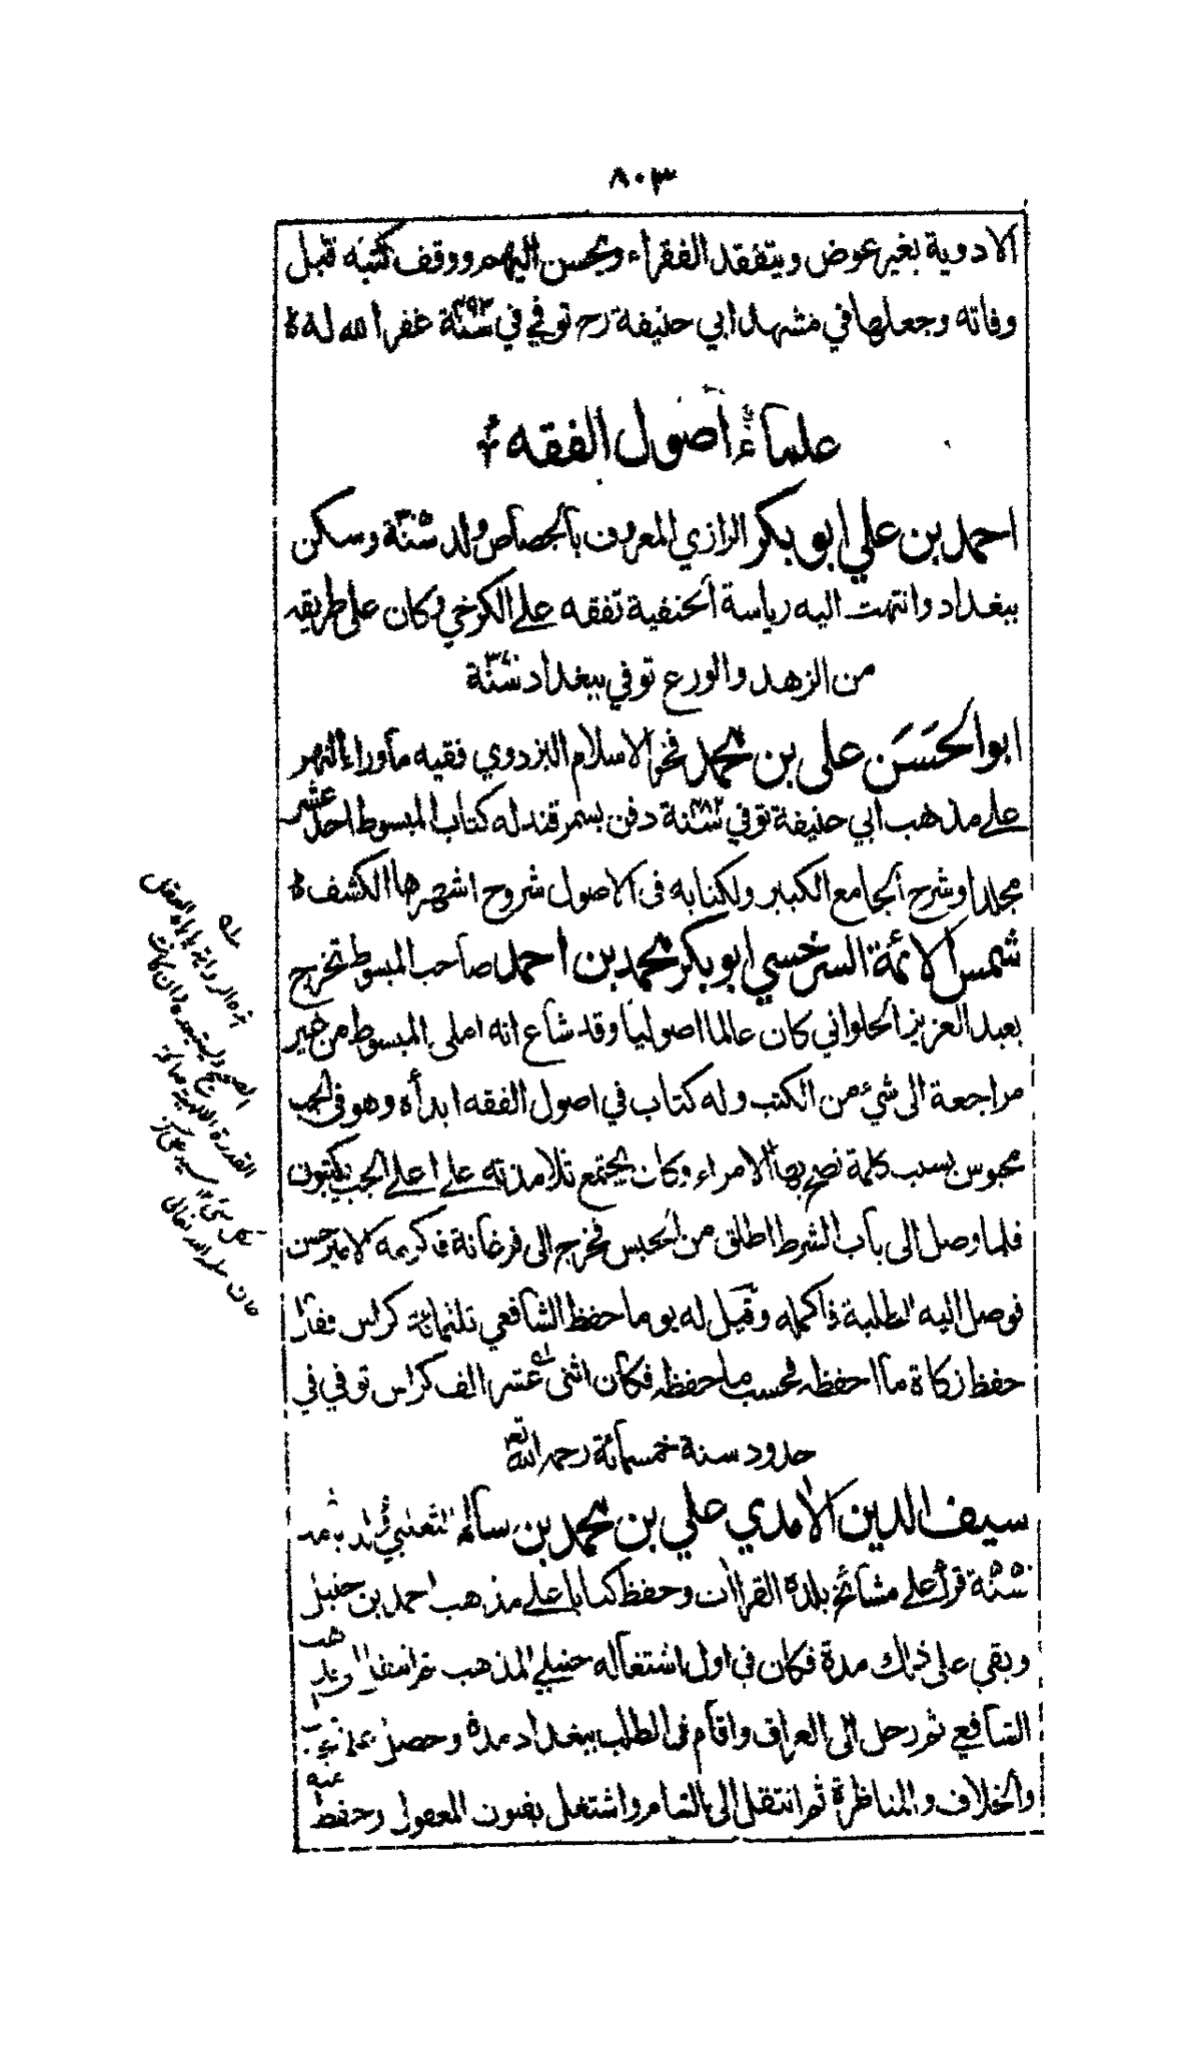 ٨٠٣
الادوية بغير عوض ويتفقد الفقراء ويحسن اليهم ووقف كتبه قبل
وفاته وجعلها في مشهد ابي حنيفة رح توفي في سنة ٤٩٣ غفر الله له ه
علماء أصول الفقه
احمد بن علي ابو بكر الرازي المعروف بالجصاص ولد سنة ٣٠٥ وسكن
ببغداد وانتهت اليه رياسة الحنفية تفقه على الكرخي وكان على طريقه
من الزهد والورع توفي ببغداد سنة ٣٧٠
ابو الحَسَن على بن محمد فخر الاسلام البزدوي فقيه ماوراء النهر
على مذهب ابي حنيفة توفي سنة ٤٨٢ دفن بسمرقند له كتاب المبسوط احد عشر
مجلدا وشرح الجامع الكبير ولكتابه فى الاصول شروح اشهرها الكشف ه
شمس الائمة السرخسي ابو بكر محمد بن احمد صاحب المبسوط تخرج
بعبد العزيز الحلواني كان عالما اصوليا وقد شاع انه املى المبسوط من غير
مراجعة الى شئ من الكتب وله كتاب في اصول الفقه ابدأه وهو فى الجب
محبوس بسبب كلمة نصح بها الامراء وكان يجتمع تلامذته على اعلى الجب يكتبون
فلما وصل الى باب الشرط اطلق من الحبس فخرج الى فرغانة فاكرمه الامير حسن
فوصل اليه الطلبة فاكمله وقيل له يوما حفظ الشافعي ثلثمائة كراس فقال
حفظ زكاة ما احفظه فحسب ما حفظه فكان اثنى عشر الف كراس توفي في
حدود سنة خمسمائة رحمه الله تع
سيف الدين الامدي علي بن محمد بن سالم الثعلبي ولد بآمد
سنة قرأ على مشائخ بلده القراات وحفظ كتابا على مذهب احمد بن حنبل
وبقي على ذلك مدة فكان في اول اشتغاله حنبلي المذهب ثم انتقل الى مذهب
الشافعي ثم رحل الى العراق واقام فى الطلب ببغداد مدة وحصل علم
والخلاف والمناظرة ثم انتقل الى الشام واشتغل بفنون المعقول وحفظ